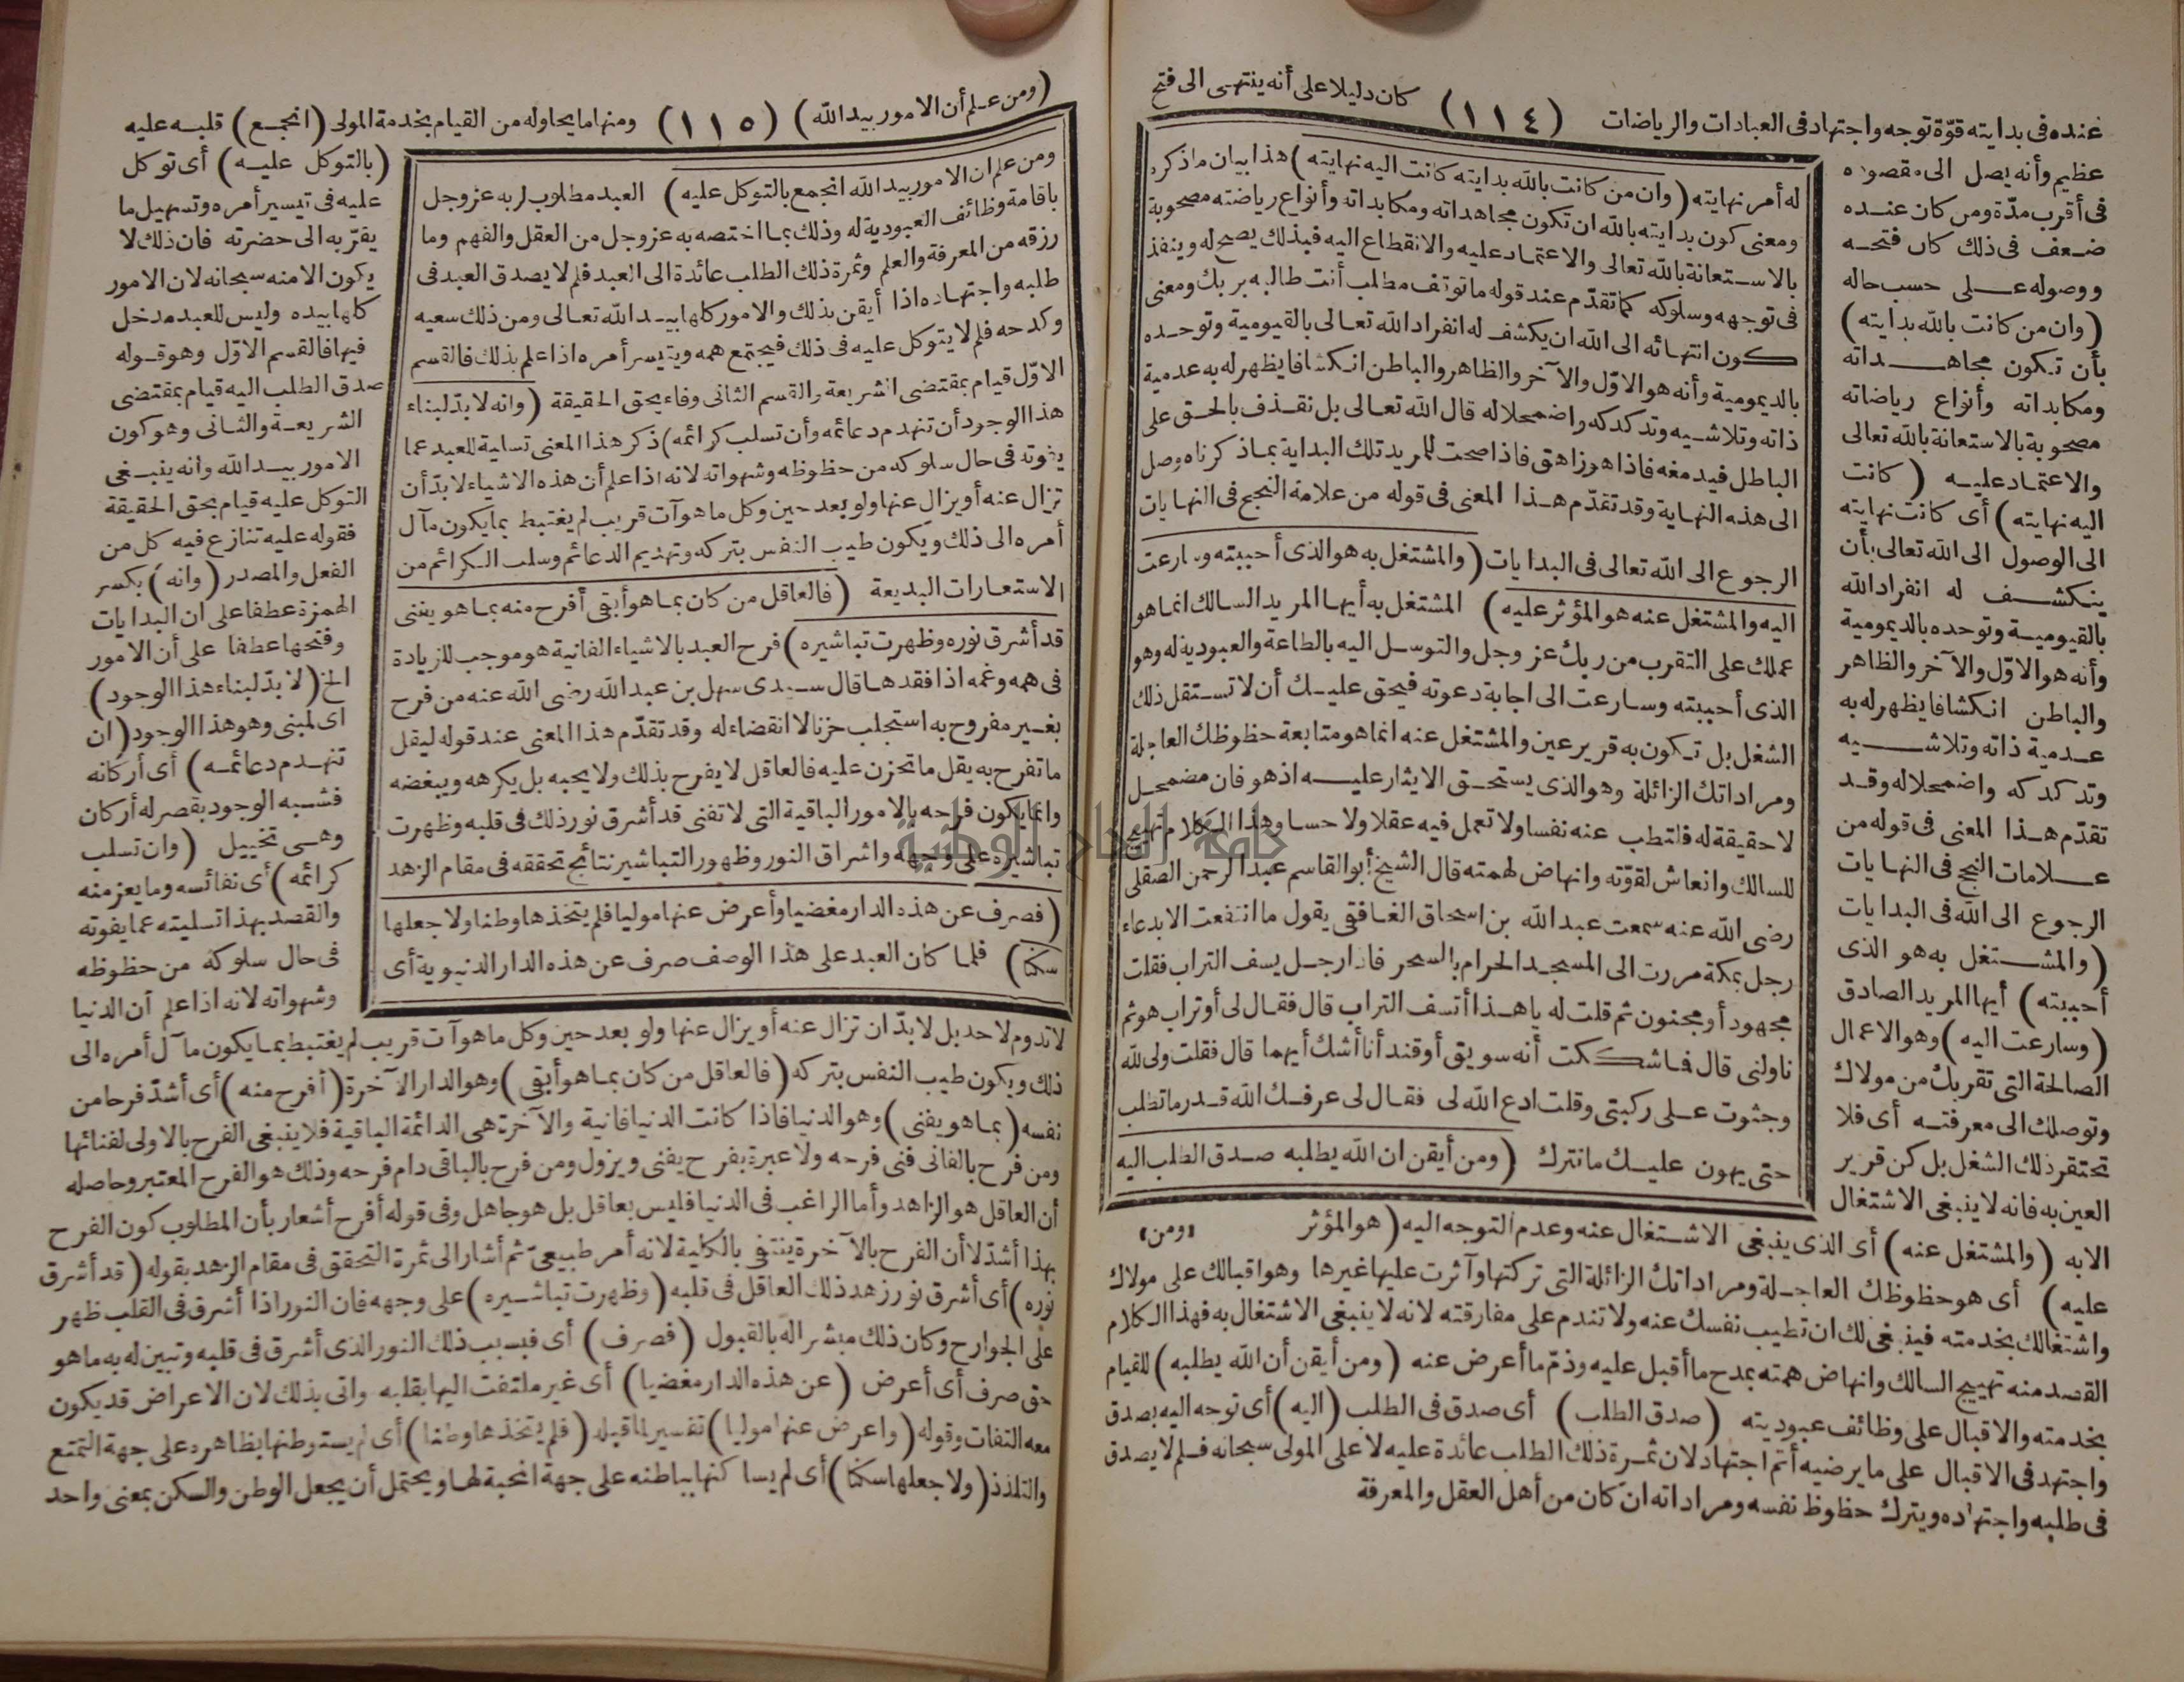 عنده فى بدايته قوّة توجه واجتهاد فى العبادات والرياضات (١١٤) كان دليلا على أنه ينتهى الى فتح
عظيم وأنه يصل الى مقصوده
فى أقرب مدّة ومن كان عنده
ضعف فى ذلك كان فتحه
ووصوله على حسب حاله
(وان من كانت بالله بدايته)
بأن تكون مجاهداته
ومكابداته وأنواع رياضاته
مصحوبة بالاستعانة بالله تعالى
والاعتماد عليه (كانت
اليه نهايته) أى كانت نهايته
الى الوصول الى الله تعالى بأن
ينكشف له انفراد الله
بالقيومية وتوحده بالديمومية
وأنه هو الاوّل والآخر والظاهر
والباطن انكشافا يظهر له به
عدمية ذاته وتلاشيه
وتدكدكه واضمحلاله وقد
تقدّم هذا المعنى فى قوله من
علامات النجح فى النهايات
الرجوع الى الله فى البدايات
(والمشتغل به هو الذى
أحببته) أيها المريد الصادق
(وسارعت اليه) وهو الاعمال
الصالحة التى تقربك من مولاك
وتوصلك الى معرفته أى فلا
تحتقر ذلك الشغل بل كن قرير
العين به فانه لا ينبغى الاشتغال
له أمر نهايته (وان من كانت بالله بدايته كانت اليه نهايته) هذا بيان ما ذكره
ومعنى كون بدايته بالله ان تكون مجاهداته ومكابداته وأنواع رياضته مصحوبة
بالاستعانة بالله تعالى والاعتماد عليه والانقطاع اليه فبذلك يصح له وينفذ
فى توجهه وسلوكه كما تقدّم عند قوله ما توقف مطلب أنت طالبه بربك ومعنى
كون انتهائه الى الله ان يكشف له انفراد الله تعالى بالقيومية وتوحده
بالديمومية وأنه هو الاوّل والآخر والظاهر والباطن انكشافا يظهر له به عدمية
ذاته وتلاشيه وتدكدكه واضمحلاله قال الله تعالى بل نقذف بالحق على
الباطل فيدمغه فاذا هو زاهق فاذا صحت للمريد تلك البداية بما ذكرناه وصل
الى هذه النهاية وقد تقدّم هذا المعنى فى قوله من علامة النجح فى النهايات
الرجوع الى الله تعالى فى البدايات (والمشتغل به هو الذى أحببته وسارعت
اليه والمشتغل عنه هو المؤثر عليه) المشتغل به أيها المريد السالك انما هو
عملك على التقرب من ربك عز وجل والتوسل اليه بالطاعة والعبودية له وهو
الذى أحببته وسارعت الى اجابة دعوته فيحق عليك أن لا تستقل ذلك
الشغل بل تكون به قرير عين والمشتغل عنه انما هو متابعة حظوظك العاجلة
ومراداتك الزائلة وهو الذى يستحق الايثار عليه اذ هو فان مضمحل
لا حقيقة له فلتطب عنه نفسا ولا تعمل فيه عقلا ولا حسا وهذا الكلام تهييج
للسالك وانعاش لقوّته وانهاض لهمته قال الشيخ أبو القاسم عبد الرحمن الصقلى
رضى الله عنه سمعت عبد الله بن اسحاق الغافقى يقول ما انتفعت الا بدعاء
رجل بمكة مررت الى المسجد الحرام بالسحر فاذا رجل يسف التراب فقلت
مجهود أو مجنون ثم قلت له يا هذا أتسف التراب قال فقال لى أو تراب هو ثم
ناولنى قال فما شككت أنه سويق أو قند أنا أشك أيهما قال فقلت ولى لله
وجثوت على ركبتى وقلت ادع الله لى فقال لى عرفك الله قدر ما تطلب
حتى يهون عليك ما تترك (ومن أيقن ان الله يطلبه صدق الطلب اليه
الابه (والمشتغل عنه) أى الذى ينبغى الاشتغال عنه وعدم التوجه اليه (هو المؤثر «ومن»
عليه) أى هو حظوظك العاجلة ومراداتك الزائلة التى تركتها وآثرت عليها غيرها وهو اقبالك على مولاك
واشتغالك بخدمته فينبغى لك ان تطيب نفسك عنه ولا تندم على مفارقته لانه لا ينبغى الاشتغال به فهذا الكلام
القصد منه تهييج السالك وانهاض همته بمدح ما أقبل عليه وذمّ ما أعرض عنه (ومن أيقن أن الله يطلبه) للقيام
بخدمته والاقبال على وظائف عبوديته (صدق الطلب) أى صدق فى الطلب (اليه) أى توجه اليه بصدق
واجتهد فى الاقبال على ما يرضيه أتم اجتهاد لان ثمرة ذلك الطلب عائدة عليه لا على المولى سبحانه فلم لا يصدق
فى طلبه واجتهاده ويترك حظوظ نفسه ومراداته ان كان من أهل العقل والمعرفة
(ومن علم أن الامور بيد الله) (١١٥) ومنها ما يحاوله من القيام بخدمة المولى (انجمع) قلبه عليه
ومن علم ان الامور بيد الله انجمع بالتوكل عليه) العبد مطلوب لربه عز وجل
باقامة وظائف العبودية له وذلك بما اختصه به عز وجل من العقل والفهم وما
رزقه من المعرفة والعلم وثمرة ذلك الطلب عائدة الى العبد فلم لا يصدق العبد فى
طلبه واجتهاده اذا أيقن بذلك والامور كلها بيد الله تعالى ومن ذلك سعيه
وكدحه فلم لا يتوكل عليه فى ذلك فيجتمع همه ويتيسر أمره اذا علم بذلك فالقسم
الاوّل قيام بمقتضى الشريعة والقسم الثانى وفاء بحق الحقيقة (وانه لا بدّ لبناء
هذا الوجود أن تنهدم دعائمه وأن تسلب كرائمه) ذكر هذا المعنى تسلية للعبد عما
يفوته فى حال سلوكه من حظوظه وشهواته لانه اذا علم أن هذه الاشياء لا بدّ أن
تزال عنه أو يزال عنها ولو بعد حين وكل ما هو آت قريب لم يغتبط بما يكون مآل
أمره الى ذلك ويكون طيب النفس بتركه وتهديم الدعائم وسلب الكرائم من
الاستعارات البديعة (فالعاقل من كان بما هو أبقى أفرح منه بما هو يفنى
قد أشرق نوره وظهرت تباشيره) فرح العبد بالاشياء الفانية هو موجب للزيادة
فى همه وغمه اذا فقدها قال سيدى سهل بن عبد الله رضى الله عنه من فرح
بغير مفروح به استجلب حزنا لا انقضاء له وقد تقدّم هذا المعنى عند قوله ليقل
ما تفرح به يقل ما تحزن عليه فالعاقل لا يفرح بذلك ولا يحبه بل يكرهه ويبغضه
وانما يكون فرحه بالامور الباقية التى لا تفنى قد أشرق نور ذلك فى قلبه وظهرت
تباشيره على وجهه واشراق النور وظهور التباشير نتائج تحققه فى مقام الزهد
(فصرف عن هذه الدار مغضيا وأعرض عنها موليا فلم يتخذها وطنا ولا جعلها
سكنا) فلما كان العبد على هذا الوصف صرف عن هذه الدار الدنيوية أى
(بالتوكل عليه) أى توكل
عليه فى تيسير أمره وتسهيل ما
يقرّبه الى حضرته فان ذلك لا
يكون الا منه سبحانه لان الامور
كلها بيده وليس للعبد مدخل
فيها فالقسم الاوّل وهو قوله
صدق الطلب اليه قيام بمقتضى
الشريعة والثانى وهو كون
الامور بيد الله وانه ينبغى
التوكل عليه قيام بحق الحقيقة
فقوله عليه تنازع فيه كل من
الفعل والمصدر (وانه) بكسر
الهمزة عطفا على ان البدايات
وفتحها عطفا على أن الامور
الخ (لا بدّ لبناء هذا الوجود)
اى لمبنى وهو هذا الوجود (ان
تنهدم دعائمه) أى أركانه
فشبه الوجود بقصر له أركان
وهى تخييل (وان تسلب
كرائمه) أى نفائسه وما يعز منه
والقصد بهذا تسليته عما يفوته
فى حال سلوكه من حظوظه
وشهواته لانه اذا علم أن الدنيا
لا تدوم لاحد بل لا بدّ ان تزال عنه أو يزال عنها ولو بعد حين وكل ما هو آت قريب لم يغتبط بما يكون مآل أمره الى
ذلك ويكون طيب النفس بتركه (فالعاقل من كان بما هو أبقى) وهو الدار الآخرة (أفرح منه) أى أشدّ فرحا من
نفسه (بما هو يفنى) وهو الدنيا فاذا كانت الدنيا فانية والآخرة هى الدائمة الباقية فلا ينبغى الفرح بالاولى لفنائها
ومن فرح بالفانى فنى فرحه ولا عبرة بفرح يفنى ويزول ومن فرح بالباقى دام فرحه وذلك هو الفرح المعتبر وحاصله
أن العاقل هو الزاهد وأما الراغب فى الدنيا فليس بعاقل بل هو جاهل وفى قوله أفرح أشعار بأن المطلوب كون الفرح
بهذا أشدّ لا أن الفرح بالآخرة ينتفى بالكلية لانه أمر طبيعىّ ثم أشار الى ثمرة التحقق فى مقام الزهد بقوله (قد أشرق
نوره) أى أشرق نور زهد ذلك العاقل فى قلبه (وظهرت تباشيره) على وجهه فان النور اذا أشرق فى القلب ظهر
على الجوارح وكان ذلك مبشرا له بالقبول (فصرف) أى فبسبب ذلك النور الذى أشرق فى قلبه وتبين له به ما هو
حق صرف أى أعرض (عن هذه الدار مغضيا) أى غير ملتفت اليها بقلبه واتى بذلك لان الاعراض قد يكون
معه التفات وقوله (واعرض عنها موليا) تفسير لما قبله (فلم يتخذها وطنا) أى لم يستوطنها بظاهره على جهة التمتع
والتلذذ (ولا جعلها سكنا) أى لم يساكنها بباطنه على جهة المحبة لها ويحتمل أن يجعل الوطن والسكن بمعنى واحد
جامعة النجاح الوطنية